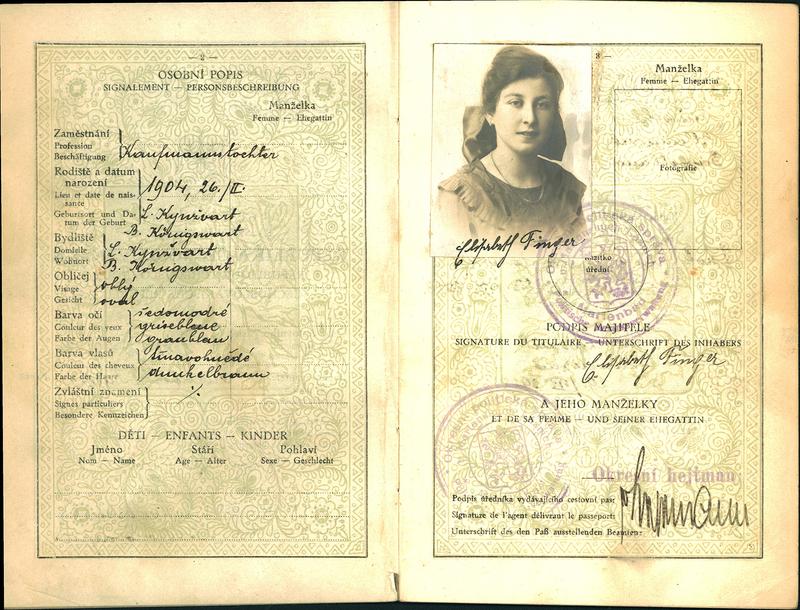 — 2 —
OSOBNÍ POPIS
SIGNALEMENT — PERSONSBESCHREIBUNG
Manželka
Femme — Ehegattin
Zaměstnání
Profession
Beschäftigung
Kaufmannstochter
Rodiště a datum
narození
Lieu et date de nais-
sance
Geburtsort und Da-
tum der Geburt
1904, 26./II.
L. Kynžvart
B. Königswart
Bydliště
Domicile
Wohnort
L. Kynžvart
B. Königswart
Obličej
Visage
Gesicht
oblý
oval
Barva očí
Couleur des yeux
Farbe der Augen
šedomodré
grisebleue
graublau
Barva vlasů
Couleur des cheveux
Farbe der Haare
tmavohnědé
dunkelbraun
Zvláštní znamení
Signes particuliers
Besondere Kennzeichen
./.
DĚTI — ENFANTS — KINDER
Jméno Stáří Pohlaví
Nom — Name Age — Alter Sexe — Geschlecht
3 —
Manželka
Femme — Ehegattin
Fotografie
Elisabeth Finger
razítko
úřední
Marienbad
PODPIS MAJITELE
SIGNATURE DU TITULAIRE — UNTERSCHRIFT DES INHABERS
Elisabeth Finger
A JEHO MANŽELKY
ET DE SA FEMME — UND SEINER EHEGATTIN
Okresní hejtman
Podpis úředníka vydávajícího cestovní pas:
Signature de l'agent délivrant le passeport:
Unterschrift des den Paß ausstellenden Beamten: